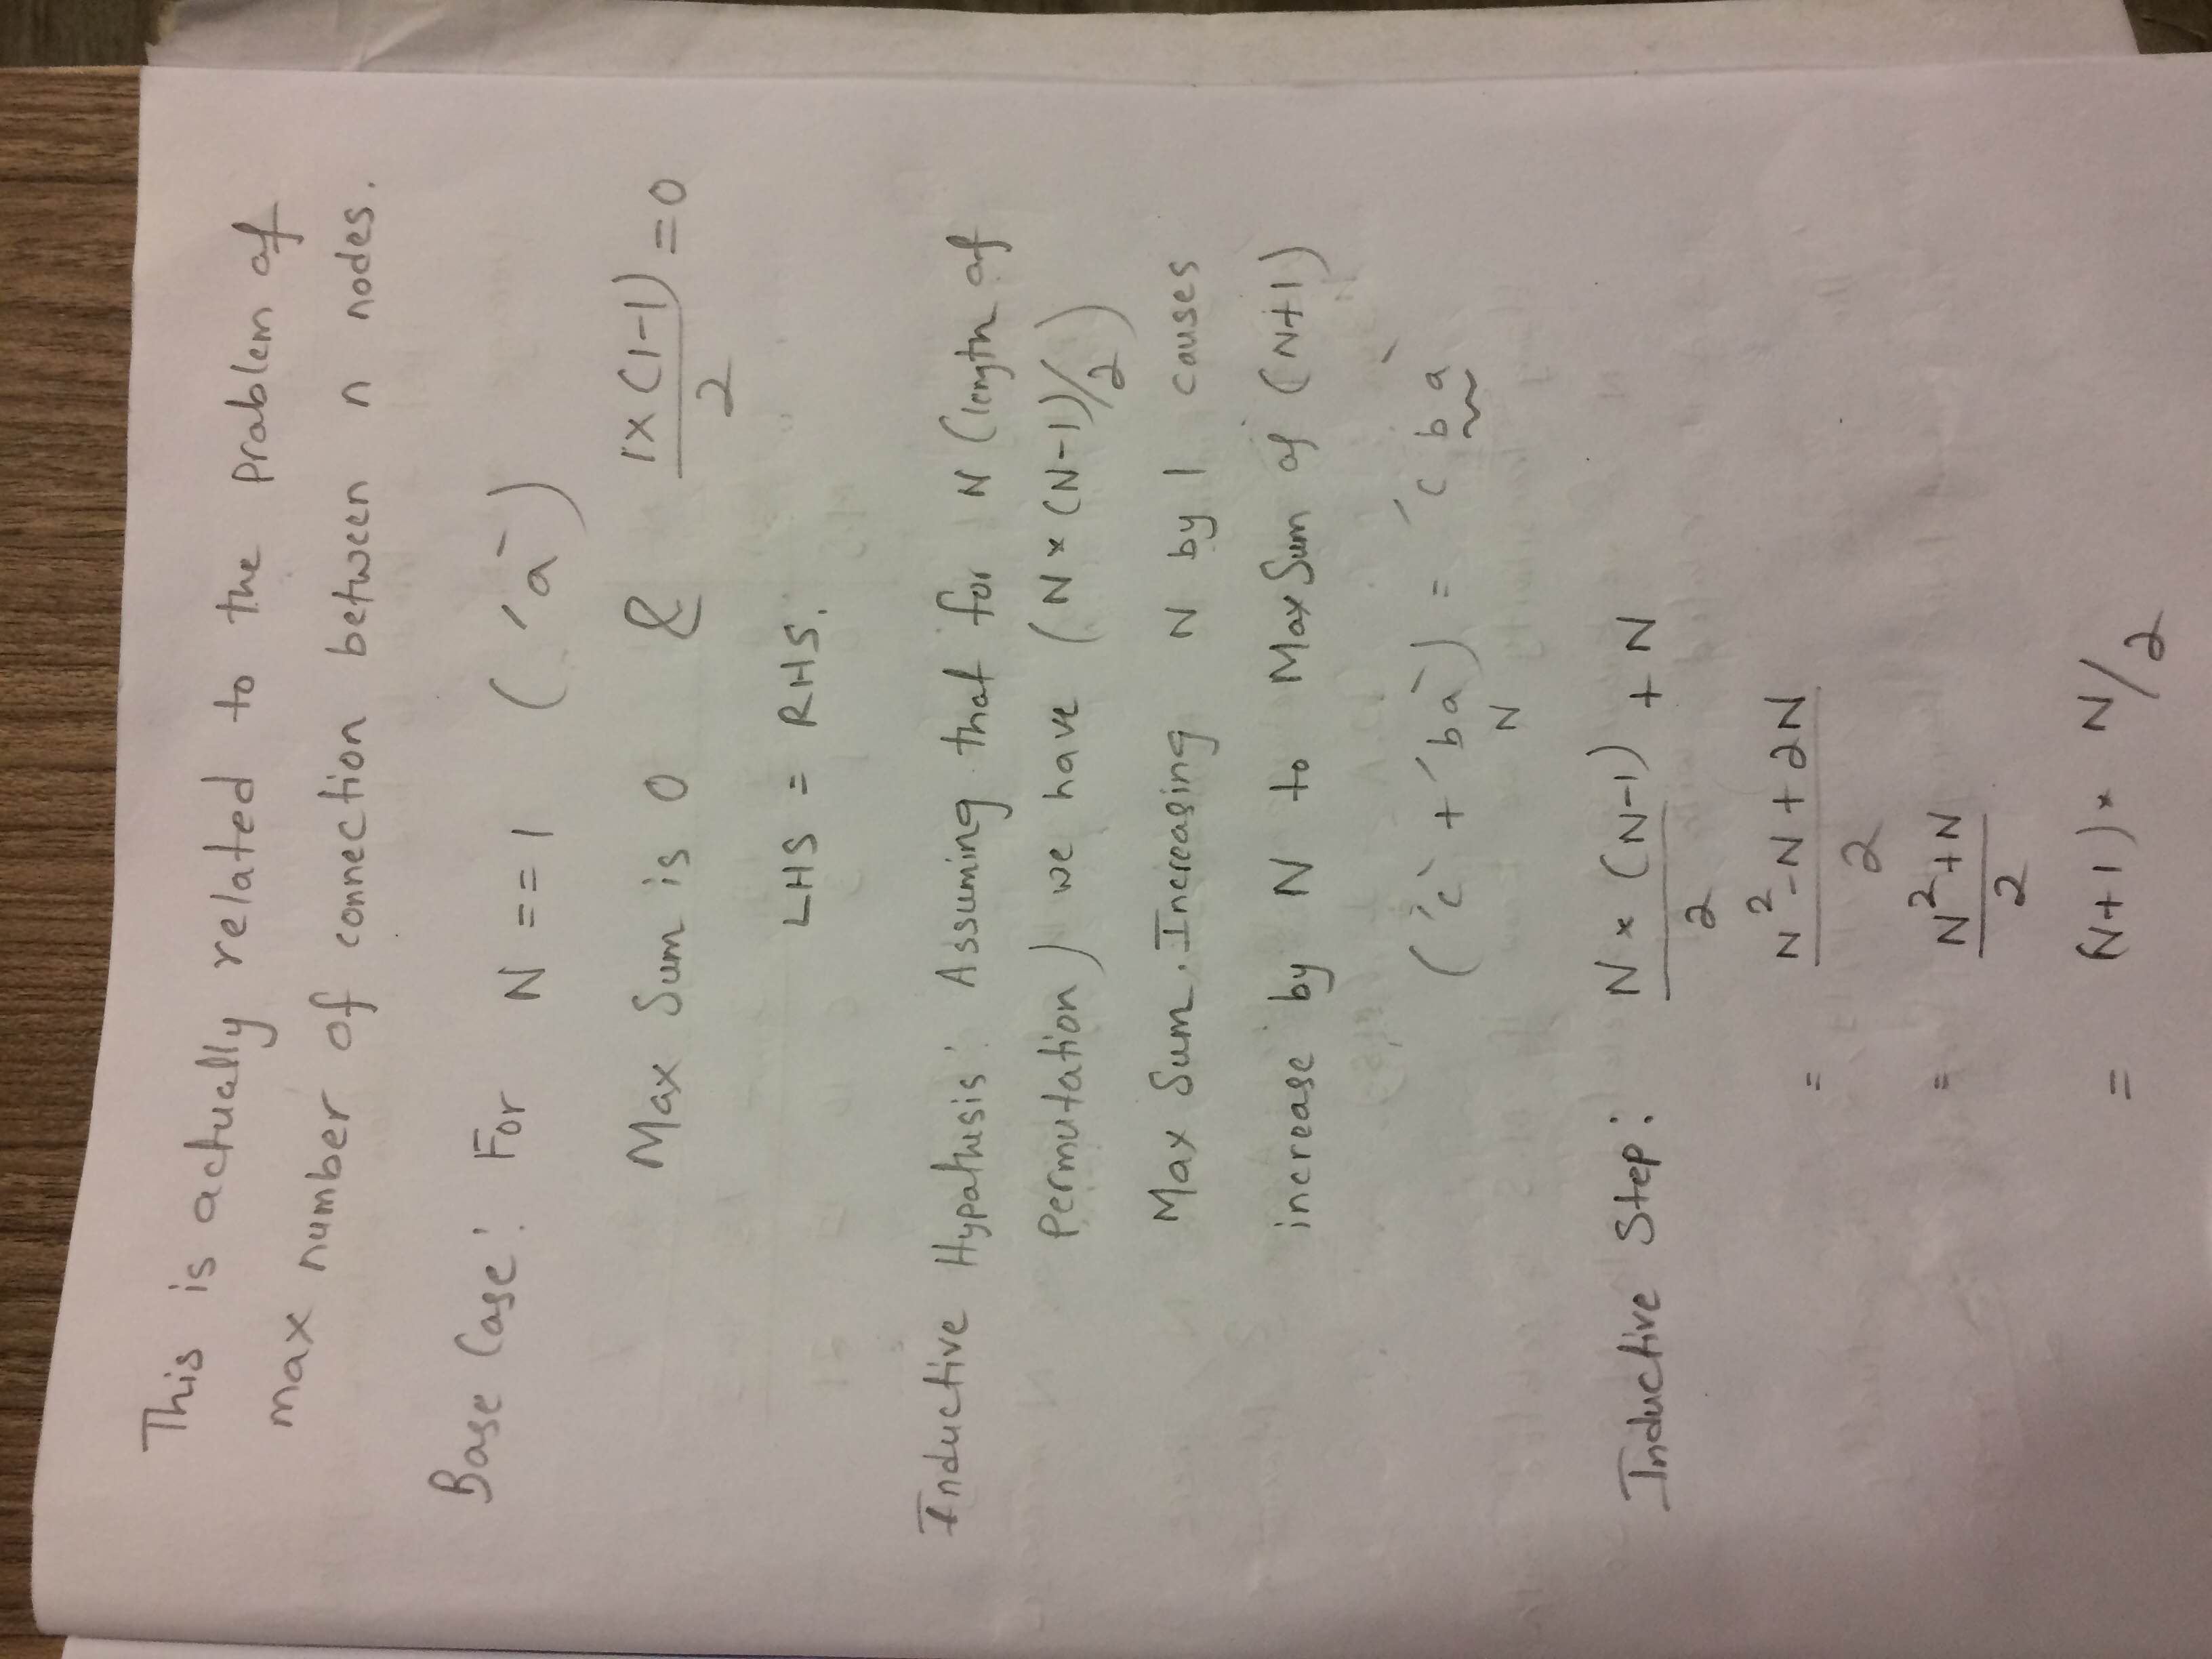 This is actually related to the problem of
max number of connection between n nodes.
Base Case: For N == 1 ('a')
Max Sum is 0 & 1×(1-1)/2 = 0
LHS = RHS.
Inductive Hypothesis: Assuming that for N (length of
Permutation) we have (N × (N-1)/2)
Max Sum. Increasing N by 1 causes
increase by N to Max Sum of (N+1)
('c' + 'ba') = 'cba'
N
Inductive Step: N × (N-1)/2 + N
= N² - N + 2N / 2
= N² + N / 2
= (N+1) × N/2